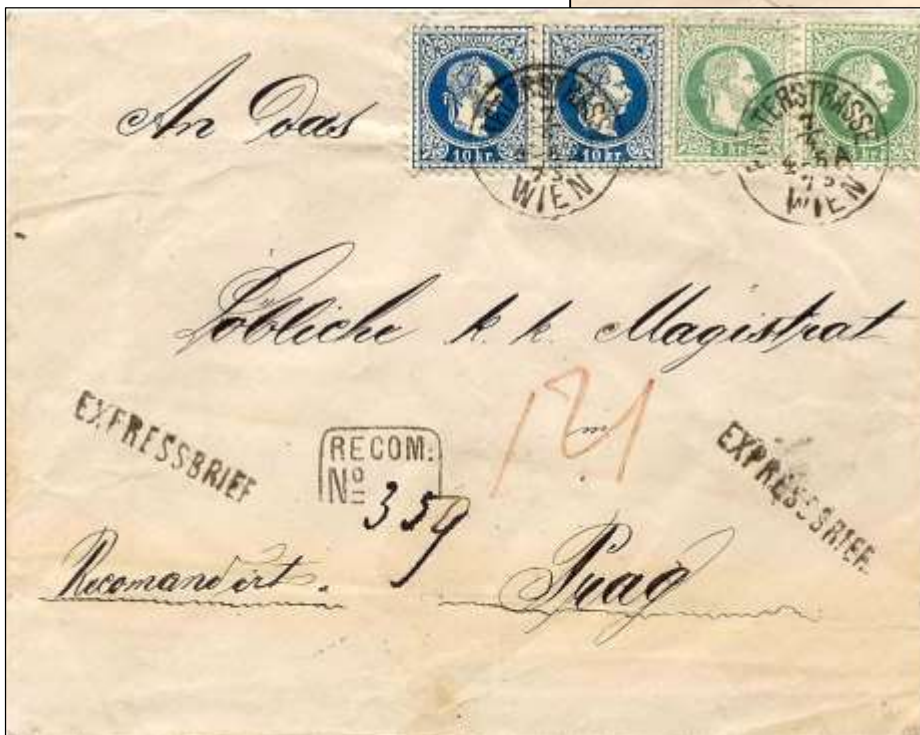 10 kr. 10 kr. 3 kr.
PRATERSTRASSE
WIEN
PRATERSTRASSE
WIEN
An das
Löbliche k. k. Magistrat
in
EXPRESSBRIEF
RECOM:
No 359
EXPRESSBRIEF
Recomandirt.
Prag